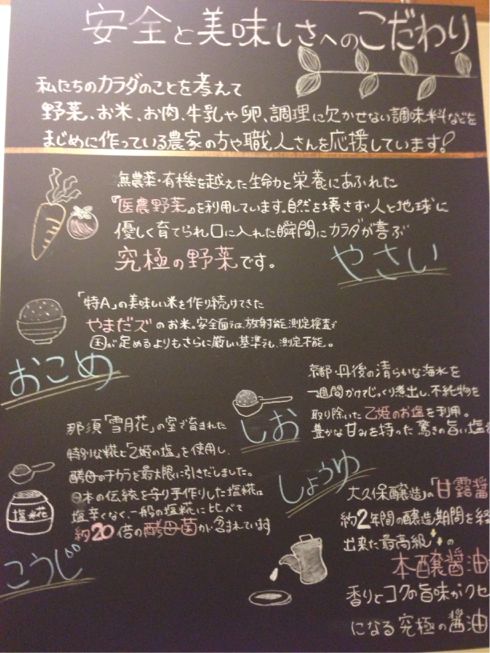 安全と美味しさへのこだわり
私たちのカラダのことを考えて
野菜、お米、お肉、牛乳や卵、調理に欠かせない調味料などを
まじめに作っている農家の方や職人さんを応援しています!
無農薬・有機を越えた生命力と栄養にあふれた
『医農野菜』を利用しています。自然を壊さず人と地球に
優しく育てられ口に入れた瞬間にカラダが喜ぶ
究極の野菜です。
やさい
「特A」の美味しい米を作り続けてきた
やまだズのお米。安全面では、放射能測定検査で
国が定めるよりもさらに厳しい基準でも、測定不能。
おこめ
京都・丹後の清らかな海水を
一週間かけてじっくり煮出し、不純物を
取り除いた乙姫のお塩を利用。
豊かな甘みを持った驚きの旨い塩
しお
那須「雪月花」の室で育まれた
特別な糀と「乙姫の塩」を使用し、
酵母のチカラを最大限に引きだしました。
日本の伝統を守り手作りした塩糀は
塩辛くなく、一般の塩糀に比べて
約20倍の酵母菌が含まれています
塩糀
こうじ
しょうゆ
大久保醸造の「甘露醤
約2年間の醸造期間を経
出来た最高級の
本醸醤油
香りとコクの旨味がクセ
になる究極の醤油